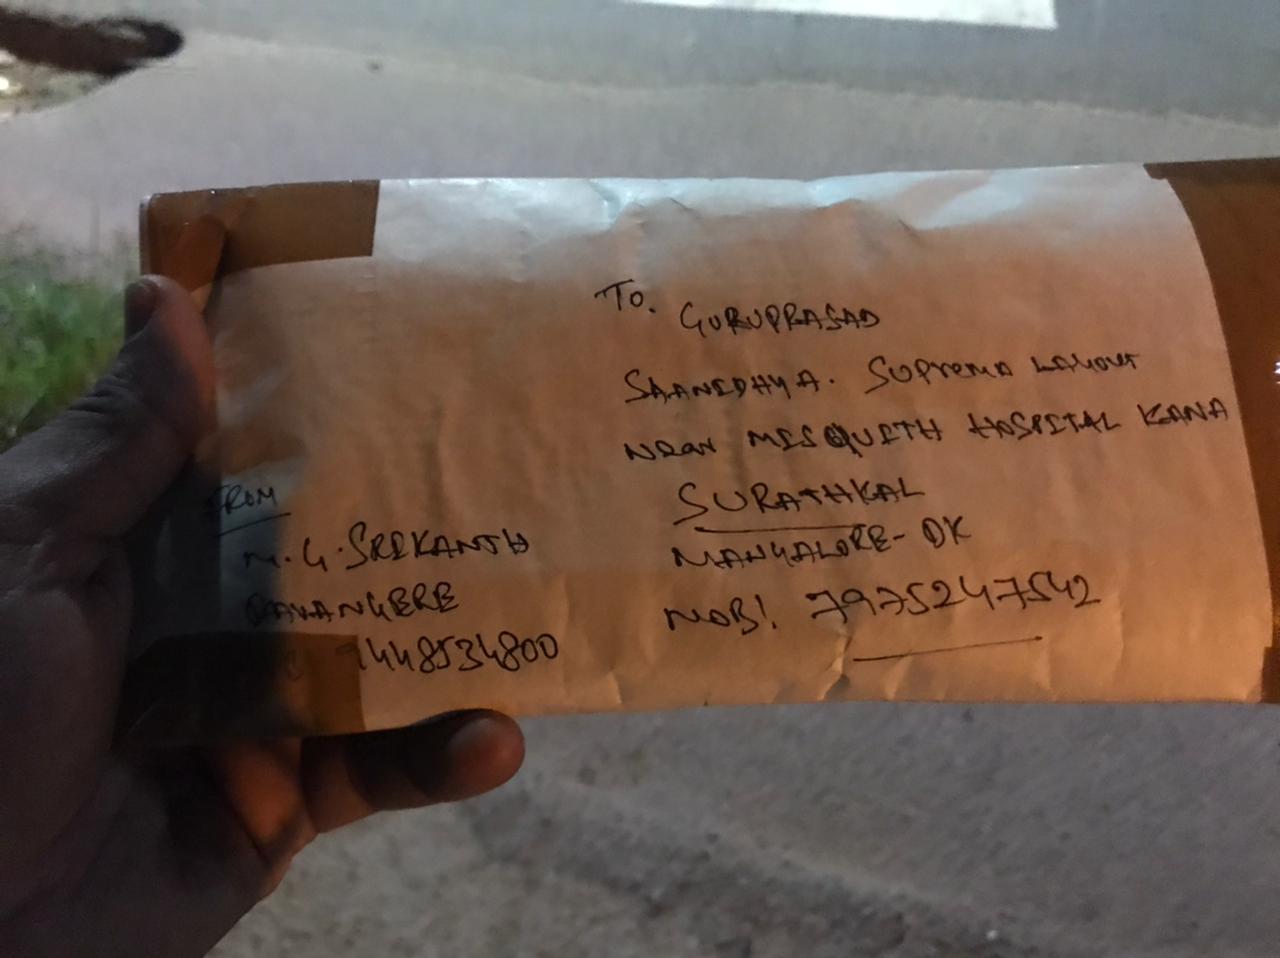 To.
GURUPRASAD
SAANIDHYA. SUPreMA LAYOUT
Near MISQUITH HOSPITAL KANA
SURATHKAL
MANGALORE- DK
MOB! 7975247542
FROM
M.G. SRIKANTH
DAVANGERE
9448534800